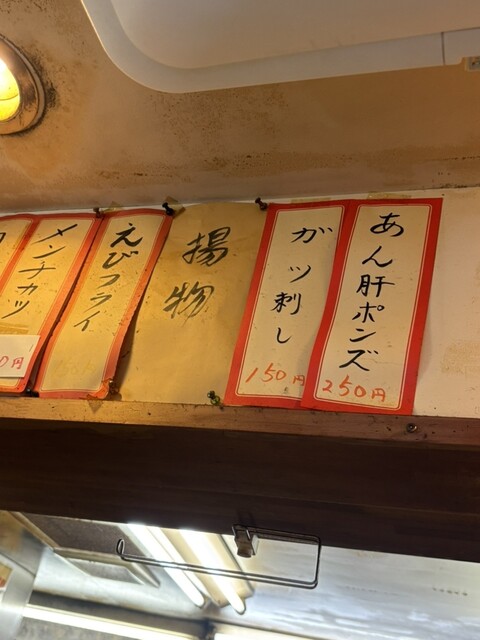 あん肝ポンズ
250円
ガツ刺し
150円
揚物
えびフライ
メンチカツ
0円